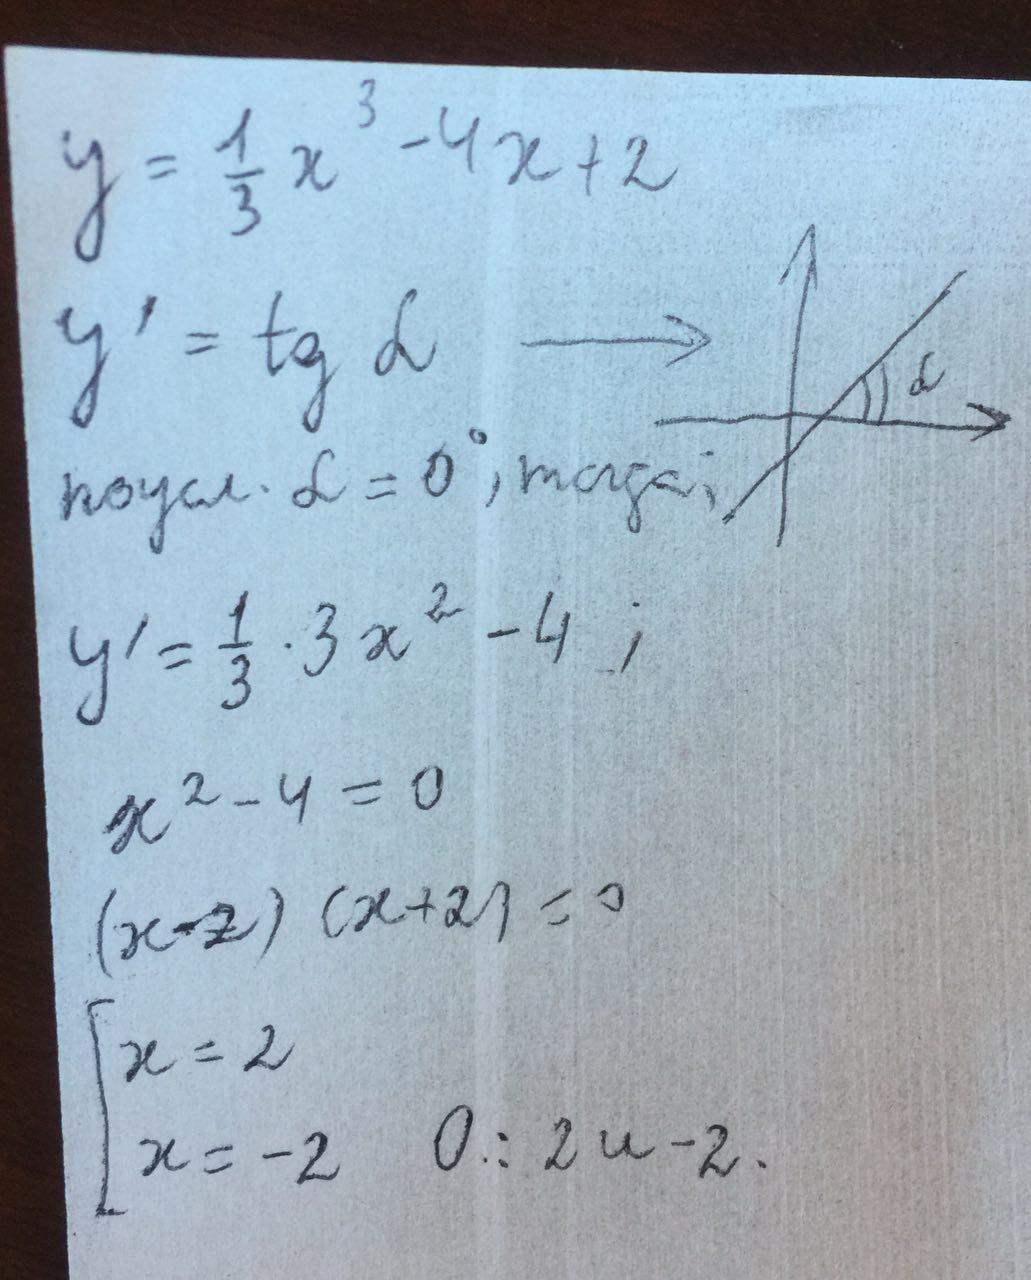 y = 1/3 x³ - 4x + 2
y' = tg α → α
по усл. α = 0°, тогда;
y' = 1/3 · 3x² - 4 ;
x² - 4 = 0
(x-2) (x+2) = 0
[ x = 2
x = -2 О.: 2 и -2.